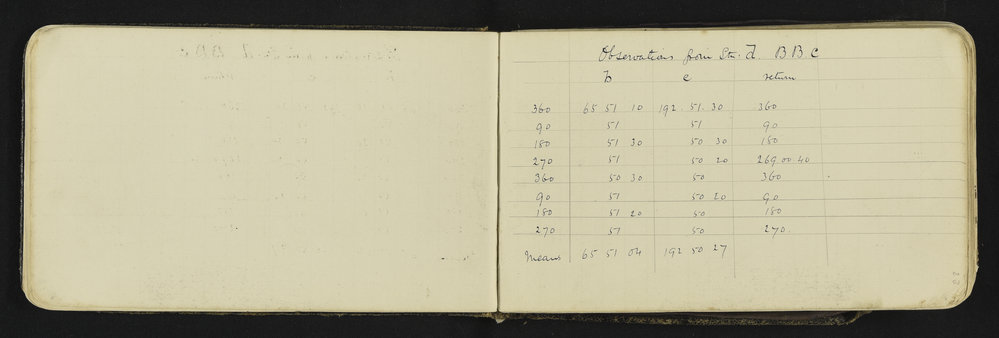 Observations from Stn. d. BBC
b c return
360 65 51 10 192. 51. 30 360
90 51 51 90
180 51 30 50 30 180
270 51 50 20 269.00.40
360 50 30 50 360
90 51 50 20 90
180 51 20 50 180
270 51 50 270.
Means 65 51 04 192 50 27